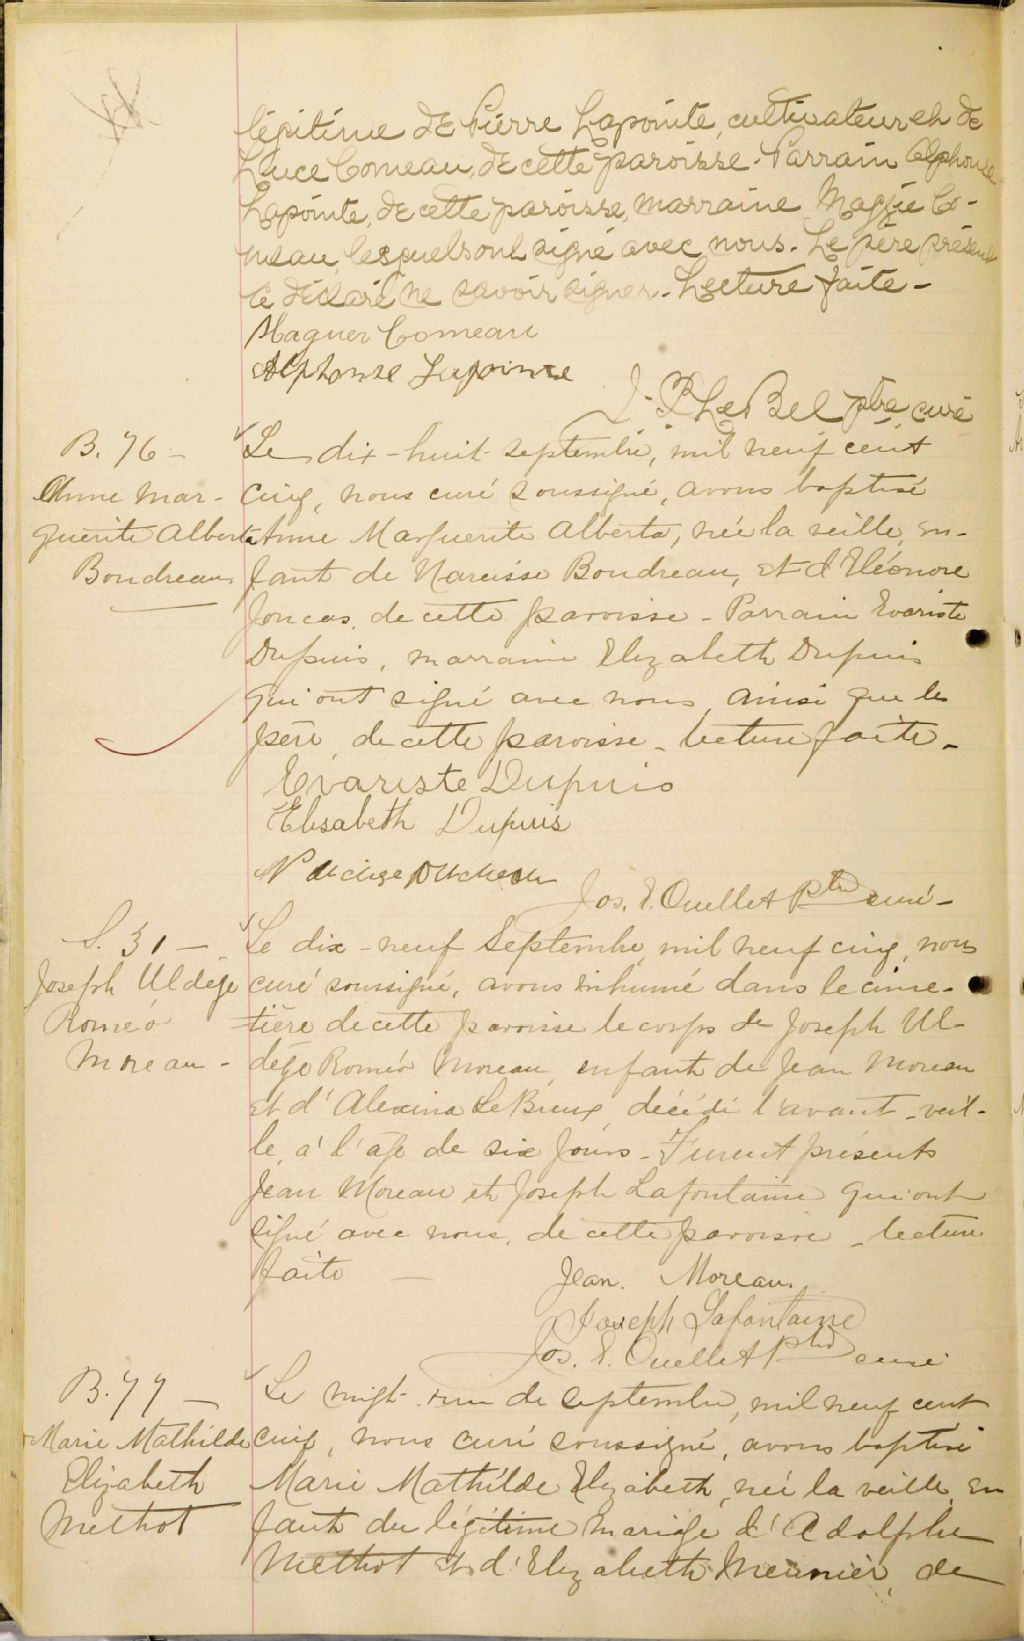 légitime de Pierre Lapointe, cultivateur et de
Luce Comeau, de cette paroisse. Parrain Alphonse
Lapointe, de cette paroisse, marraine Maggie Co-
meau, lesquels ont signé avec nous. Le père présent
a déclaré ne savoir signer. Lecture faite -
Comeau
Alphonse Lapointe
J. P. LeBel ptre curé
B. 76 -
Anne Mar-
guerite Alberta
Boudreau
Le dix-huit septembre, mil neuf cent
cinq, nous curé soussigné, avons baptisé
Anne Marguerite Alberta, née la veille, en-
fant de Narcisse Boudreau, et d'Eléonore
Joncas, de cette paroisse - Parrain Evariste
Dupuis, marraine Elizabeth Dupuis
qui ont signé avec nous, ainsi que le
père, de cette paroisse - lecture faite -
Evariste Dupuis
Elisabeth Dupuis
Jos. E. Ouellet Ptre curé -
S. 31 -
Joseph Uldège
Roméo
Moreau -
Le dix-neuf Septembre, mil neuf cinq, nous
curé soussigné, avons inhumé dans le cime-
tière de cette paroisse le corps de Joseph Ul-
dège Roméo Moreau, enfant de Jean Moreau
et d'Alexina LeBreux, décédé l'avant-veil-
le, à l'âge de six jours - Furent présents
Jean Moreau et Joseph Lafontaine qui ont
signé avec nous, de cette paroisse - lecture
faite -
Jean. Moreau.
Joseph Lafontaine
Jos. E. Ouellet Ptre curé
B. 77 -
Marie Mathilde
Elizabeth
Methot
Le vingt-un de septembre, mil neuf cent
cinq, nous curé soussigné, avons baptisé
Marie Mathilde Elizabeth, née la veille, en
fant du légitime mariage d'Adolphe
Methot et d'Elizabeth Meunier, de